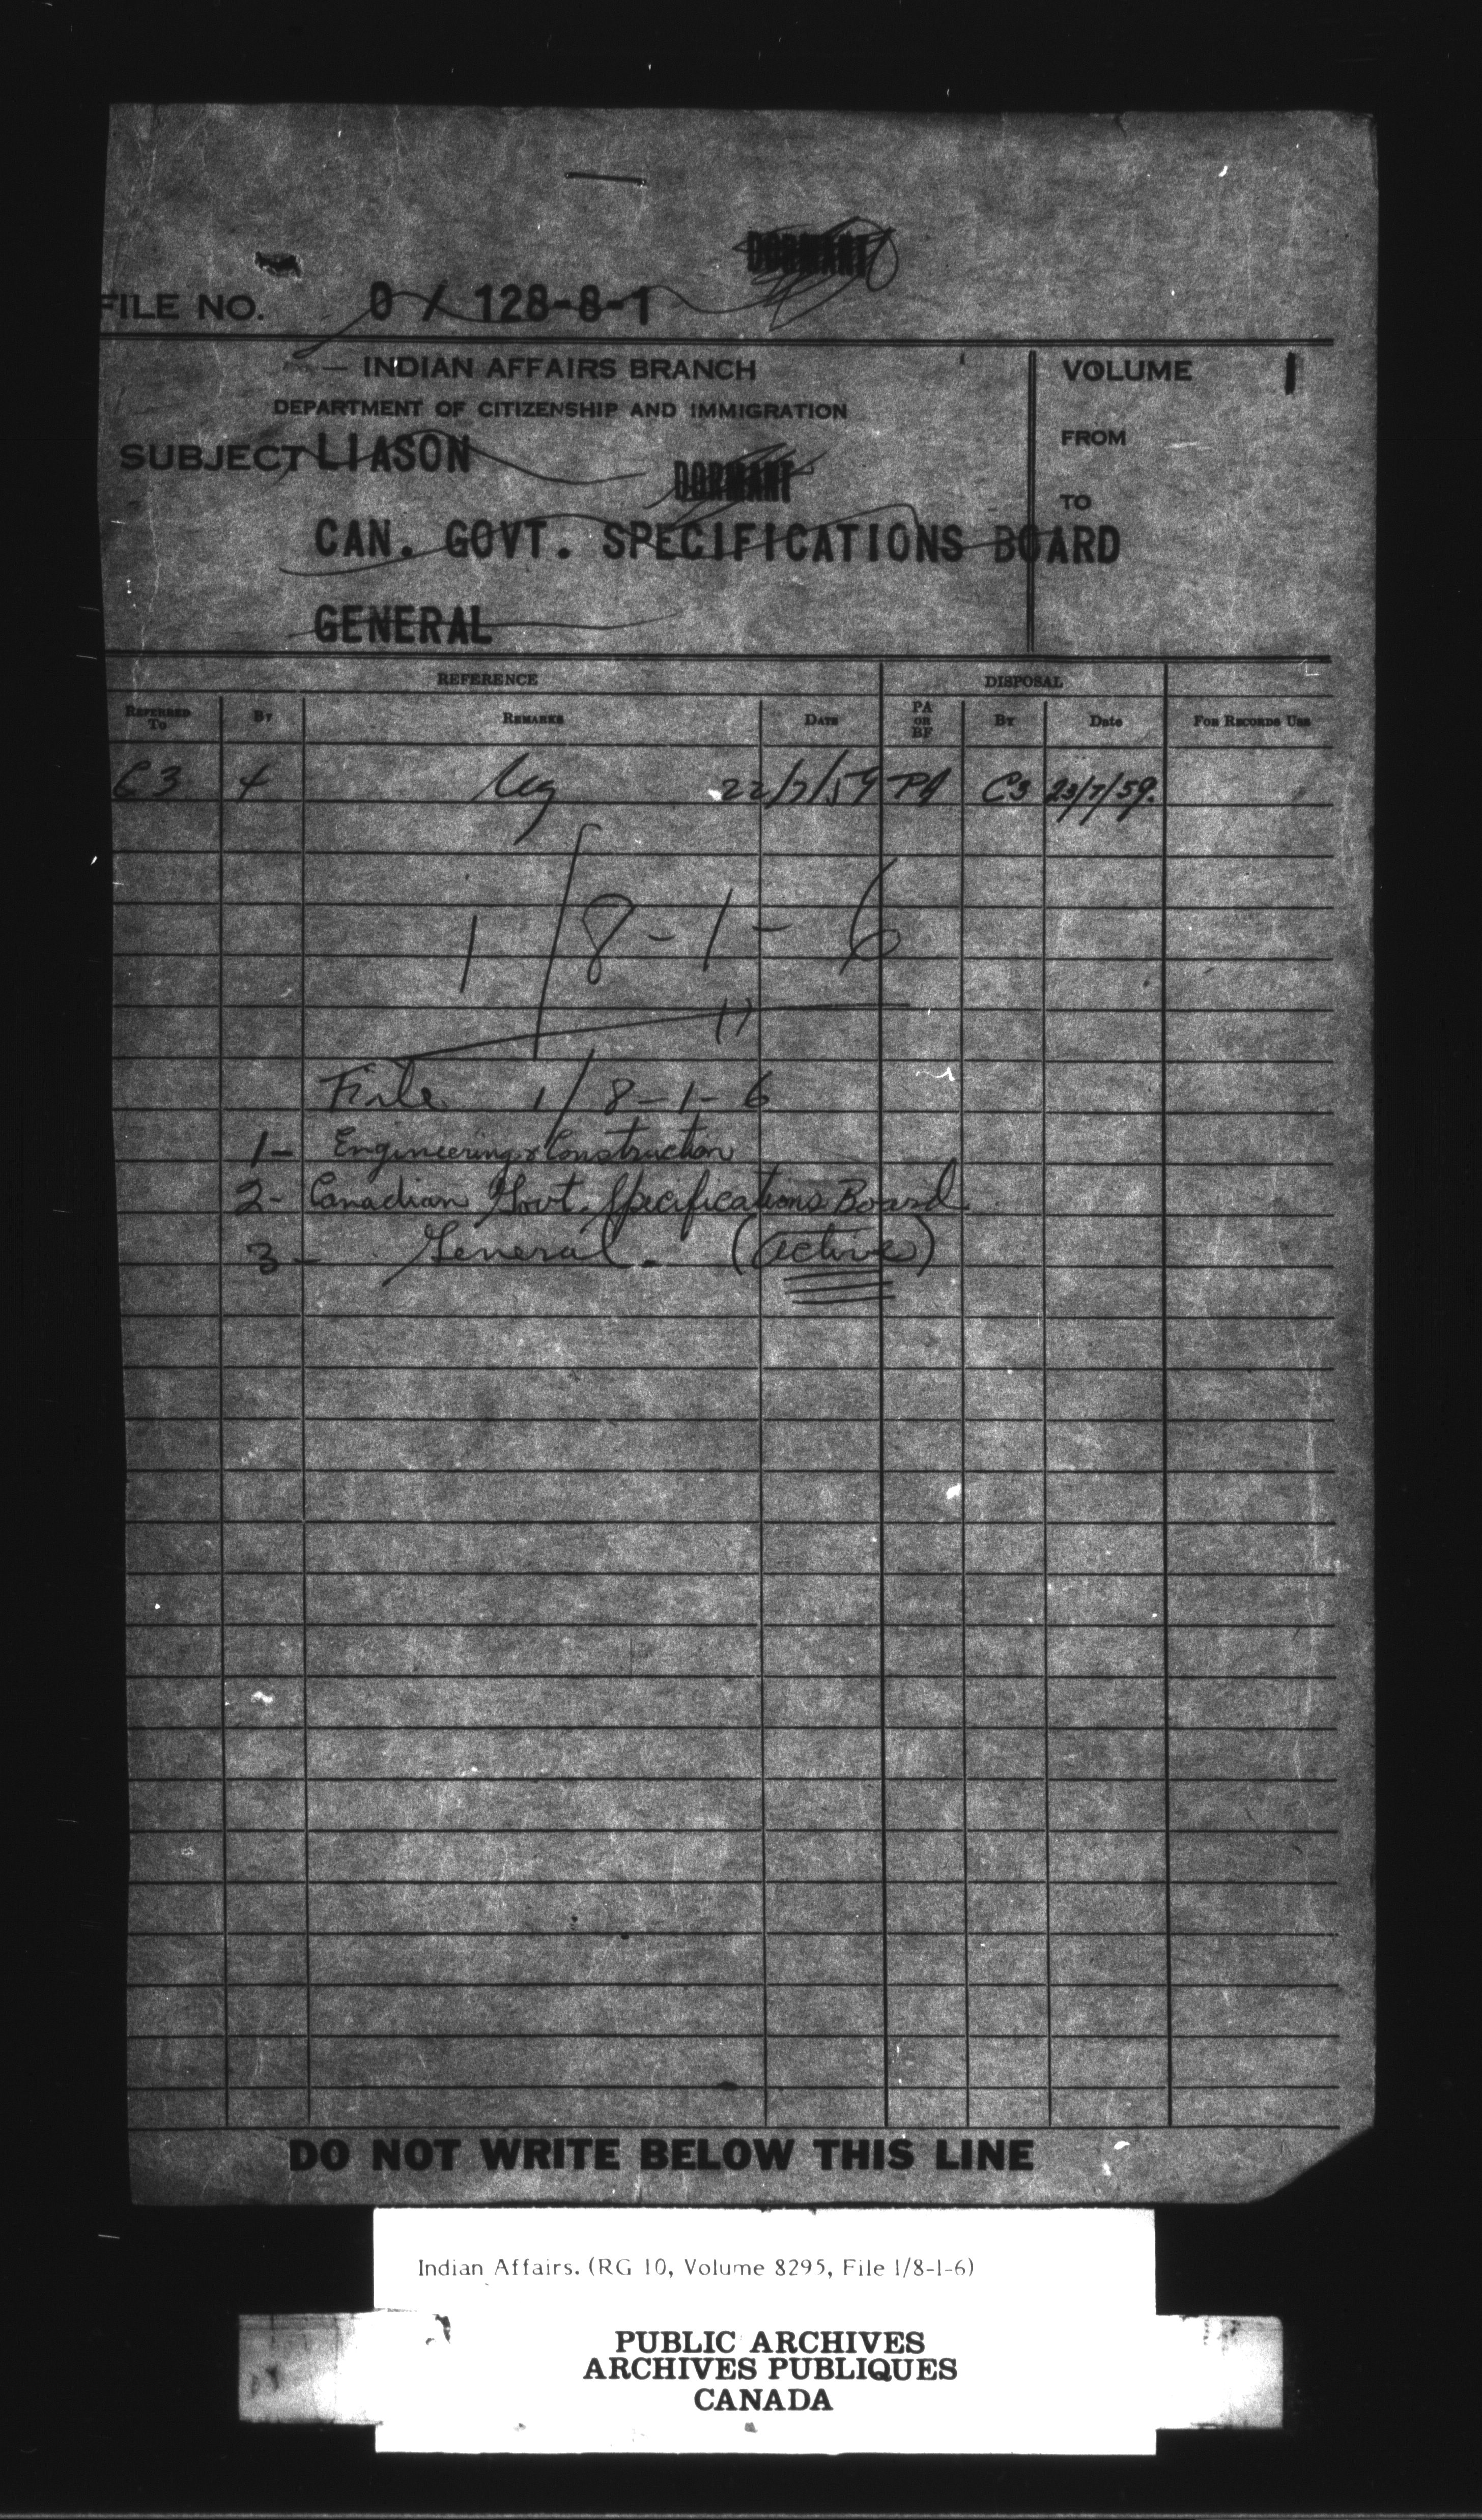 DORMANT
FILE NO. 0 / 128-8-1
INDIAN AFFAIRS BRANCH
DEPARTMENT OF CITIZENSHIP AND IMMIGRATION
VOLUME 1
FROM
TO
SUBJECT LIASON
DORMANT
CAN. GOVT. SPECIFICATIONS BOARD
GENERAL
REFERENCE DISPOSAL
REFERRED TO BY REMARKS DATE PA OR BF BY Date FOR RECORDS USE
C3 4 22/7/59 PA C3 23/7/59.
1/8-1-6
File 1/8-1-6
1- Engineering & Construction
2- Canadian Govt. Specifications Board
3- General. (Active)
DO NOT WRITE BELOW THIS LINE
Indian Affairs. (RG 10, Volume 8295, File 1/8-1-6)
PUBLIC ARCHIVES
ARCHIVES PUBLIQUES
CANADA